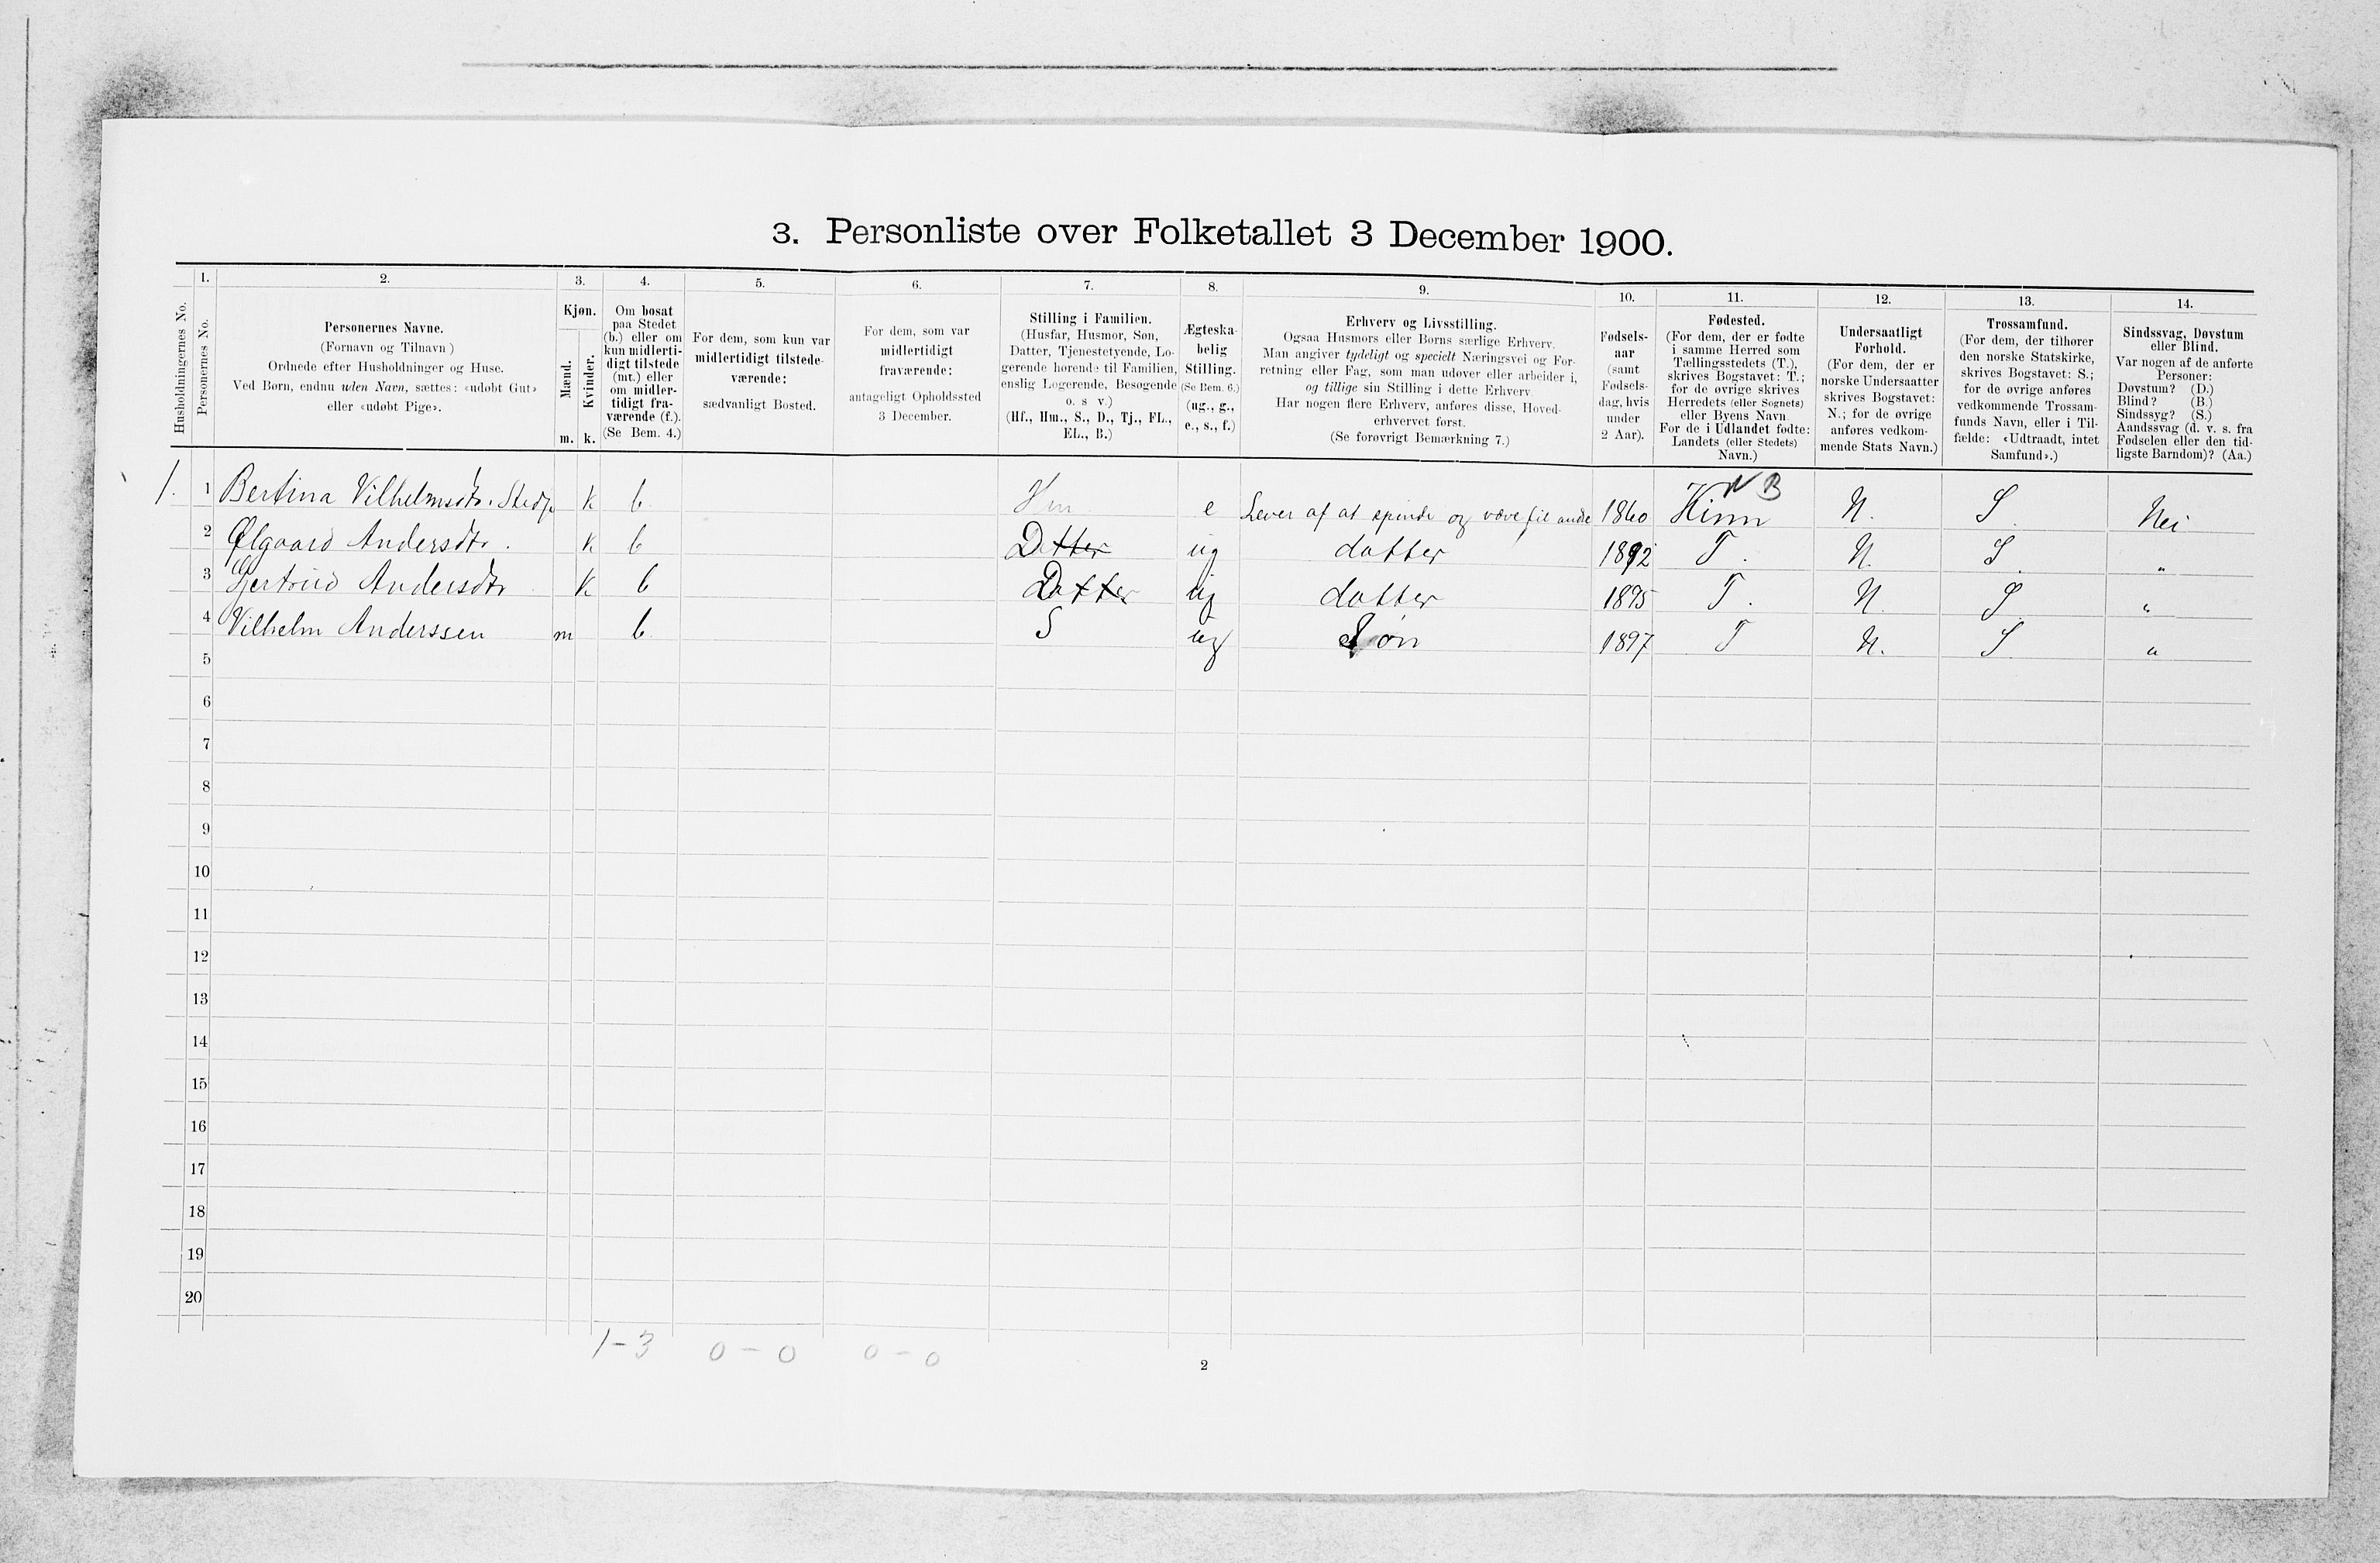 3. Personliste over Folketallet 3 December 1900.
Husholdningernes No.
1. Personernes No.
2. Personernes Navne.
(Fornavn og Tilnavn)
Ordnede efter Husholdninger og Huse.
Ved Børn, endnu uden Navn, sættes: «udøbt Gut»
eller «udøbt Pige».
3. Kjøn.
Mænd. m.
Kvinder. k.
4. Om bosat
paa Stedet
(b.) eller om
kun midlerti-
digt tilstede
(mt.) eller
om midler-
tidigt fra-
værende (f.).
(Se Bem. 4.)
5. For dem, som kun var
midlertidigt tilstede-
værende:
sædvanligt Bosted.
6. For dem, som var
midlertidigt
fraværende:
antageligt Opholdssted
3 December.
7. Stilling i Familien.
(Husfar, Husmor, Søn,
Datter, Tjenestetyende, Lo-
gerende hørende til Familien,
enslig Logerende, Besøgende
o. s v.)
(Hf., Hm., S., D., Tj., FL.,
EL., B.)
8. Ægteska-
belig
Stilling.
(Se Bem. 6.)
(ug., g.,
e., s., f.)
9. Erhverv og Livsstilling.
Ogsaa Husmors eller Børns særlige Erhverv.
Man angiver tydeligt og specielt Næringsvei og For-
retning eller Fag, som man udøver eller arbeider i,
og tillige sin Stilling i dette Erhverv.
Har nogen flere Erhverv, anføres disse, Hoved-
erhvervet først.
(Se forøvrigt Bemærkning 7.)
10. Fødsels-
aar
(samt
Fødsels-
dag, hvis
under
2 Aar).
11. Fødested.
(For dem, der er fødte
i samme Herred som
Tællingsstedets (T.),
skrives Bogstavet: T.;
for de øvrige skrives
Herredets (eller Sognets)
eller Byens Navn.
For de i Udlandet fødte:
Landets (eller Stedets)
Navn.)
12. Undersaatligt
Forhold.
(For dem, der er
norske Undersaatter
skrives Bogstavet:
N.; for de øvrige
anføres vedkom-
mende Stats Navn.)
13. Trossamfund.
(For dem, der tilhører
den norske Statskirke,
skrives Bogstavet: S.;
for de øvrige anføres
vedkommende Trossam-
funds Navn, eller i Til-
fælde: «Udtraadt, intet
Samfund».)
14. Sindssvag, Døvstum
eller Blind.
Var nogen af de anførte
Personer:
Døvstum? (D.)
Blind? (B.)
Sindssyg? (S.)
Aandssvag (d. v. s. fra
Fødselen eller den tid-
ligste Barndom)? (Aa.)
NB
1. 1 Bertina Vilhelmsdtr. k b Hm e Lever af at spinde og væve fil andre 1860 Kinn N. S. Nei
2 Ølgaard Andersdtr. k b Datter ug datter 1892 T. N. S. "
3 Gertrud Andersdtr k b Datter ug datter 1895 T. N S. "
4 Vilhelm Anderssen m b S ug Søn 1897 T N. S "
5
6
7
8
9
10
11
12
13
14
15
16
17
18
19
20
1-3 0-0 0-0
2